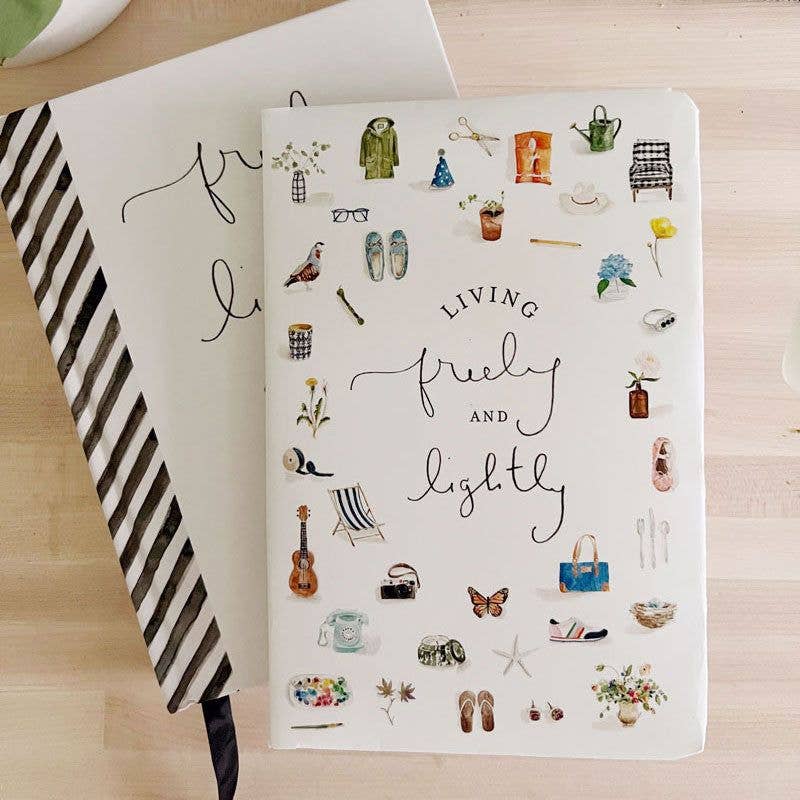 LIVING
freely
AND
lightly
fr
li